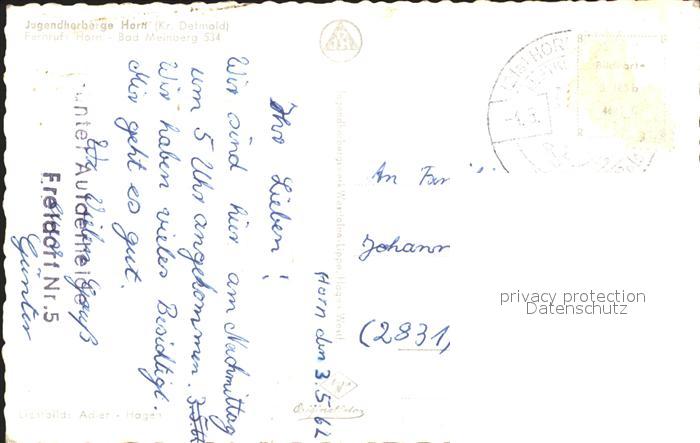 Jugendherberge Horn (Kr. Detmold)
Fernruf: Horn - Bad Meinberg 534
Horn den 3.5.62
Ihr Lieben!
Wir sind hier am Nachmittag
um 5 Uhr angekommen.
Wir haben vieles Besichtigt.
Mir geht es gut.
Gruß
Günter
Günter Aufderheide
Freldorf Nr. 5
Lichtbild: Adler - Hagen
Jugendherbergswerk Westfalen-Lippe, Hagen Westf.
An Fam
Johann
(2831)
privacy protection
Datenschutz